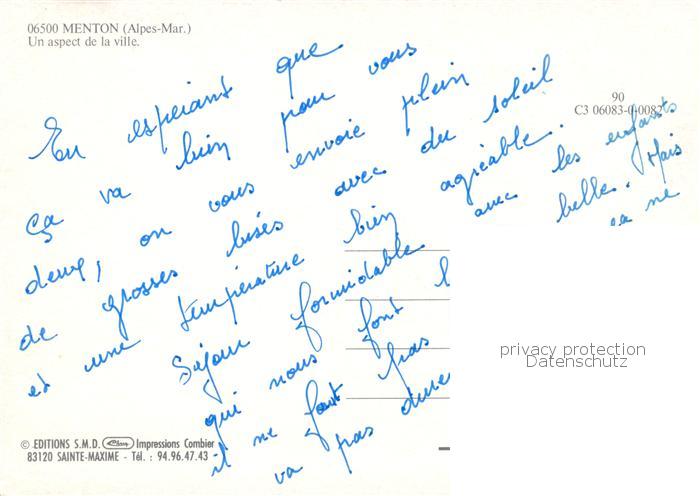 06500 MENTON (Alpes-Mar.)
Un aspect de la ville.
90
C3 06083-0-0082
En espérant que
ça va bien pour vous
deux, on vous envoie plein
de grosses bises avec du soleil
et une température bien agréable.
Séjour formidable avec les enfants
qui nous font l belle. Mais
il ne faut pas ça ne
va pas dure
privacy protection
Datenschutz
© EDITIONS S.M.D. Cim Impressions Combier
83120 SAINTE-MAXIME - Tél. : 94.96.47.43